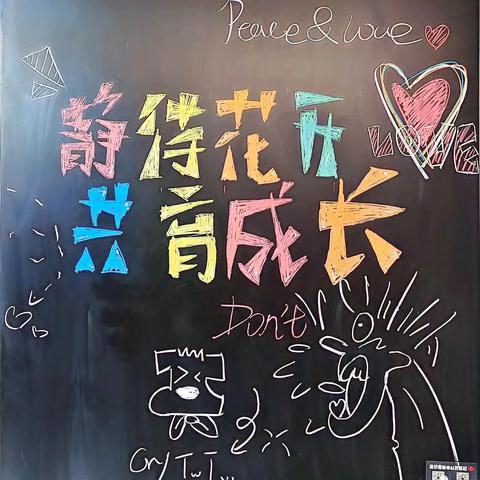 Peace & Love
LOVE
静待花开
共育成长
Don't
Cry TwT